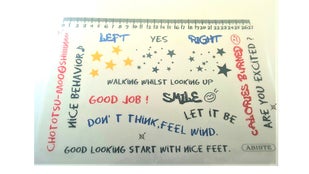 LEFT YES RIGHT
WALKING WHILST LOOKING UP
CHOTOTSU-MOO@SHIIIIIN
NICE BEHAVIOR♪
GOOD JOB!
SMILE
CALORIES BURNED
ARE YOU EXCITED?
LET IT BE
DON'T THINK, FEEL WIND.
GOOD LOOKING START WITH NICE FEET.
ABISTE